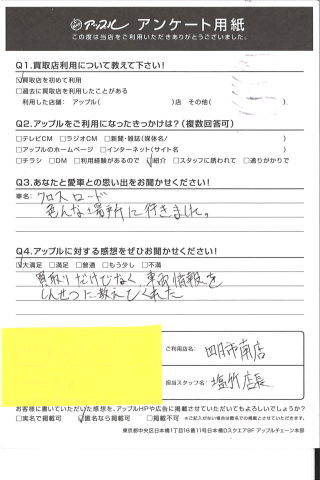 アップル アンケート用紙
この度は当店をご利用いただきありがとうございました。
Q1.買取店利用について教えて下さい!
☑買取店を初めて利用
□過去に買取店を利用したことがある
利用した店舗: アップル( )店 その他( ).
Q2.アップルをご利用になったきっかけは?(複数回答可)
□テレビCM □ラジオCM □新聞・雑誌(媒体名/ )
□アップルのホームページ □インターネット(サイト名 )
□チラシ □DM □利用経験があるので ☑紹介 □スタッフに誘われて □通りがかりで
Q3.あなたと愛車との思い出をお聞かせください!
車名: クロスロード
色んな場所に行きました。
Q4.アップルに対する感想をぜひお聞かせください!
☑大満足 □満足 □普通 □もう少し □不満
買取りだけでなく、車両情報を
しんせつに教えてくれた
ご利用店名: 四日市南店
担当スタッフ名: 塩竹店長
お客様に書いていただいた感想を、アップルHPや広告に掲載させていただいてもよろしいでしょうか?
□実名で掲載可 ☑匿名なら掲載可 □掲載不可 ※ご記入がない場合は匿名での掲載とさせていただきます。
東京都中央区日本橋1丁目16番11号日本橋Dスクエア9F アップルチェーン本部